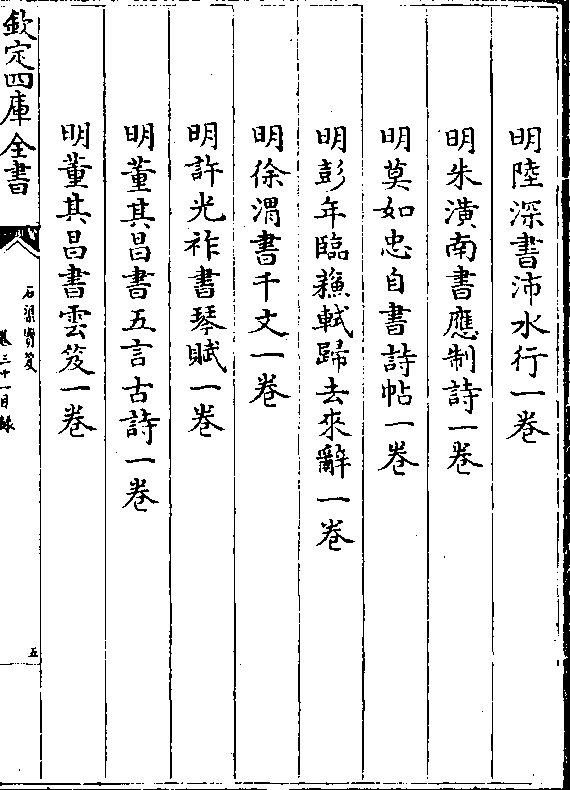 明陸深書沛水行一卷
明朱潢南書應制詩一卷
明莫如忠自書詩帖一卷
明彭年臨蘓軾歸去來辭一卷
明徐渭書千文一卷
明許光祚書琴賦一卷
明董其昌書五言古詩一卷
明董其昌書雲笈一卷
欽定四庫全書
石渠寳笈
卷三十一目録
五